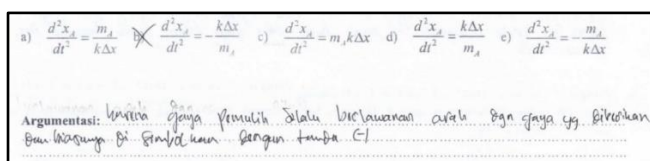 a) \frac{d^2x_A}{dt^2} = \frac{m_A}{k\Delta x} b) \frac{d^2x_A}{dt^2} = -\frac{k\Delta x}{m_A} c) \frac{d^2x_A}{dt^2} = m_A k\Delta x d) \frac{d^2x_A}{dt^2} = \frac{k\Delta x}{m_A} e) \frac{d^2x_A}{dt^2} = -\frac{m_A}{k\Delta x}
Argumentasi: karena gaya pemulih selalu berlawanan arah dgn gaya yg diberikan
dan biasanya di simbolkan dengan tanda (-)